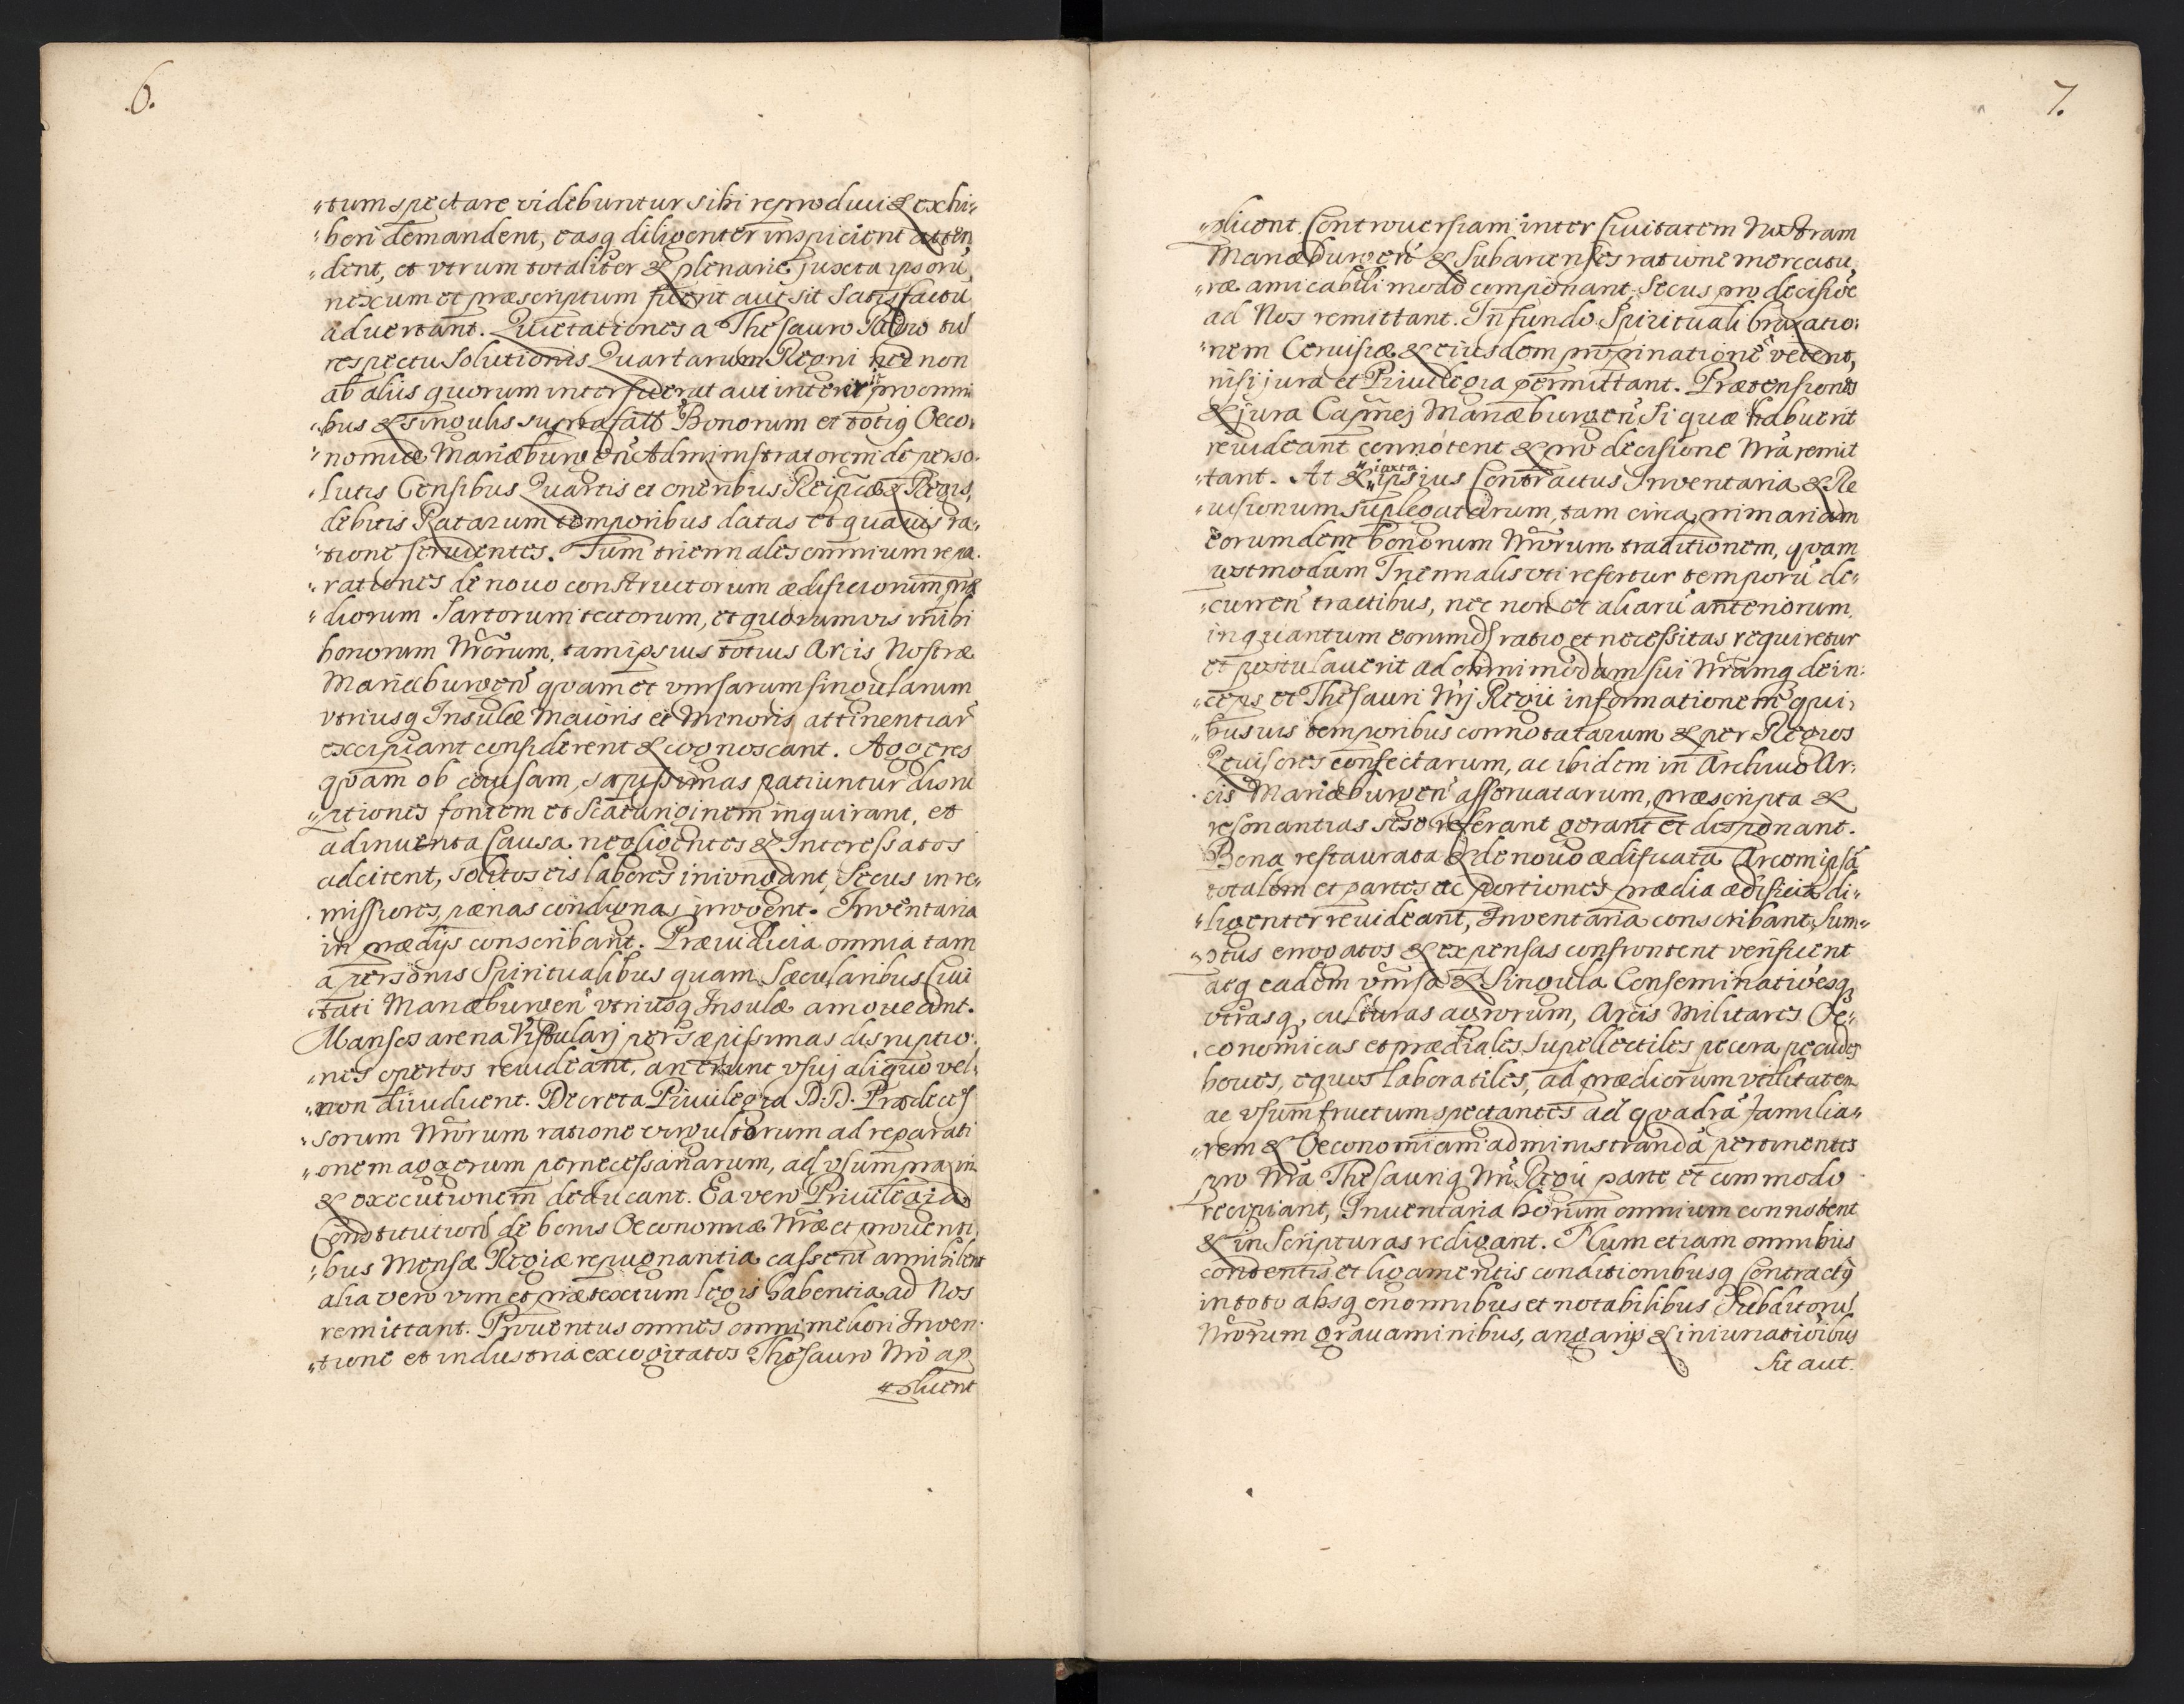 6.
„tum spectare videbuntur sibi reproduci & exhi„
„beri demandent, easq diligenter inspicient atten
„dent, et vtrum totaliter & plenarie juxta ipsorũ
nexum et præscriptum fuerit aut sit Satisfactũ
aduertant. Quietationes a Thesauro
respectu Solutionis Quartarum Regni nec non
ab alijs quorum interfuerat aut interit pro omni
„bus & singulis Bonorum et totiq Oeco„
„nomiæ Mariæburgen Administratorem de perso„
„lutis Censibus Quartis et oneribus Reipcæ & Regis,
debitis Ratarum temporibus datas et quauis ra„
„tione seruientes. Tum triennales omnium repa„
„rationes de nouo constructorum ædificiorum præ
„diorum Sartorum tectorum, et quorumvis
bonorum Nrorum, tam ipsius totius Arcis Nostræ
Mariæburgen qvam et vnrsarum singularum
vtriusq Insulæ Maioris et Minoris attinentiar
excipiant considerent & cognoscant. Aggeres
qvam ob causam, sæpissimas patiuntur disru
„ptiones fontem et Scaturiginem inquirant, et
adinuenta Causa negligentes & Interessatos
adcitent, solitos eis labores iniungant, Secus in re„
„missiores, pænas condignas irrogent. Inventaria
in prædijs conscribant. Præiudicia omnia tam
a personis Spiritualibus quam Sæcularibus Ciui
„tati Mariæburgen vtriusq Insulæ amoueant.
Mansos arena Vistulari per sæpissimas disruptio„
„nes opertos reuideant, an erunt vsuj aliquo vel„
„non diiudicent. Decreta Priuilegia D.D. Prædeces
„sorum Nrorum ratione virgultorum ad reparati
„onem aggerum pernecessariarum, ad vsum praxin
& executionem deducant. Ea vero Priuilegia
Constitution de bonis Oeconomiæ Nræ et prouenti„
„bus Mensæ Regiæ repugnantia cassent annihilent
alia vero vim et prætextum legis habentia ad Nos
remittant. Prouentus omnes omni meliori Inven„
„tione et industria excogitatos Thesauro Nro ap„
„plicent
7.
„plicent. Controuersiam inter Ciuitatem Nostram
Mariæburgen & Subarcenses ratione mercatu„
„ræ amicabili modo componant, Secus pro decisioe
ad Nos remittant. In fundo Spirituali braxatio„
„nem Ceruisiæ & eiusdem propinationẽ vetent,
nisi jura et Priuilegia permittant. Prætensiones
& jura Capnej Mariæburgen Si quæ habuerit
reuideant connotent & pro decisione Nra remit
„tant. At & iuxta ipsius Contractus Inventaria & Re
„uisionum suplegatarum, tam circa primariam
eorumdem bonorum Nrorum traditionem, qvam
postmodum Triennalis vti refertur temporũ de„
„curren tractibus, nec non et aliarũ anteriorum,
inquantum eorumd ratio et necessitas requiretur
et postulauerit ad omnimodam sui Nramq dein„
„ceps et Thesauri Nrj Regii informationem qui„
„busuis temporibus connotatarum & per Regios
Reuisores confectarum, ac ibidem in Archiuo Ar„
„cis Mariæburgen asseruatarum, præscripta &
resonantias sese referant gerant et disponant.
Bona restaurata & de nouo ædificata Arcem ipsã
totalem et partes ac portiones prædia ædificia di„
„ligenter reuideant, Inventaria conscribant, Sum„
„ptus errogatos & expensas confrontent verificent
atq eadem vnrsa & Singula Conseminatioesq
vtrasq, culturas agrorum, Arcis Militares Oe„
„conomicas et prædiales Supellectiles pecora pecudes
boues, equos laboratiles, ad prædiorum vtilitatem
ac vsumfructum spectantes ad qvadrã familia„
„rem & Oeconomiam administrandã pertinentes
pro Nra Thesauriq Nri Regii parte et commodo
recipiant, Inuentaria horum omnium connotent
& in Scripturas redigant. Num etiam omnibus
contentis et ligamentis conditionibusq Contractq
in toto absq enormibus et notabilibus Subditorũ
Nrorum grauaminibus, angarijs & iniuriatioibus
Sit aut.